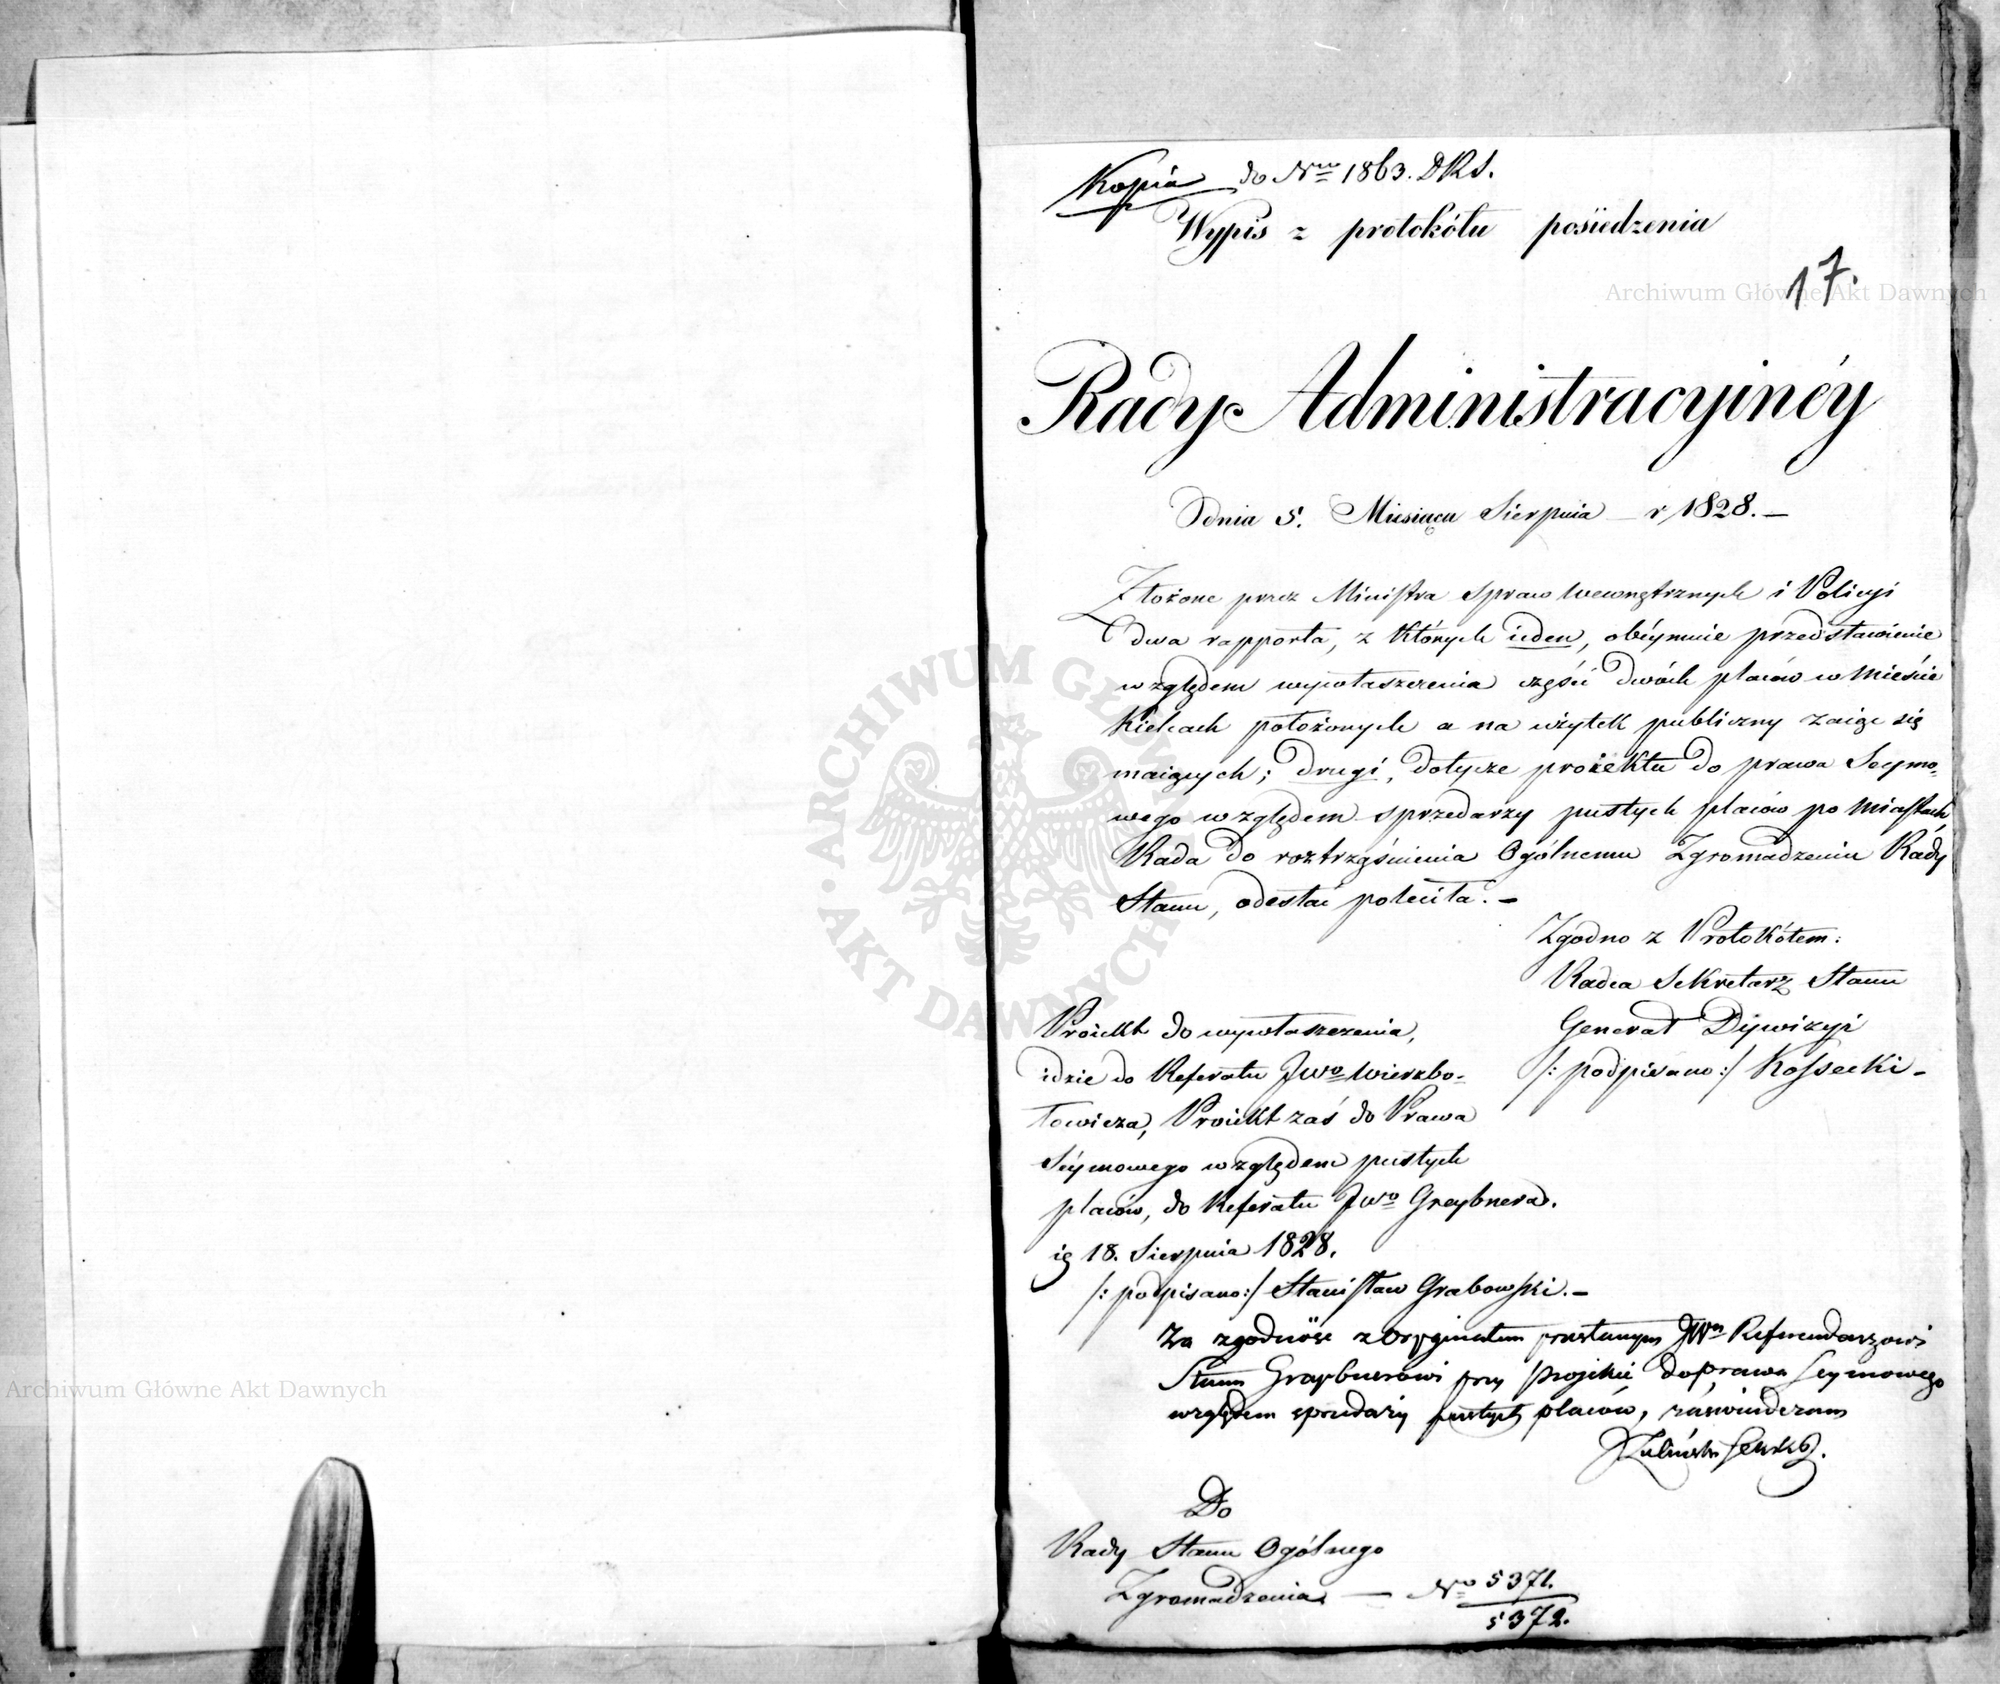 Kopia do Nru 1863. DRS.
Wypis z protokółu posiedzenia
17.
Rady Administracyinéy
Dnia 5. Miesiąca Sierpnia – r 1828. –
Złożone przez Ministra Spraw Wewnętrznych i Policyi
dwa rapporta, z których ieden, obéymuie przedstawienie
względem wywłaszczenia części dwóch placów w Mieście
Kielcach położonych a na użytek publiczny zaiąć się
maiących; drugi, dotycze proiektu do prawa Seymo-
wego względem sprzedarzy pustych placów po Miastach,
Rada do roztrząśnienia Ogólnemu Zgromadzeniu Rady
Stanu, odesłać poleciła. –
Zgodno z Protokółem:
Radca Sekretarz Stanu
Generał Dywizyi
/: podpisano :/ Kossecki –
Proiekt do wywłaszczenia,
idzie do Referatu JWo Wierzbo-
łowicza, Proiekt zaś do Prawa
Séymowego względem pustych
placów, do Referatu JWo Greybnera.
18. Sierpnia 1828.
/: podpisano :/ Stanisław Grabowski. –
Za zgodność z Oryginałem przesłanym JWu Referendarzowi
Stanu Graybnerowi przy projekcie do prawa Seymowego
względem sprzedaży pustych placów, zaświadczam
Do
Rady Stanu Ogólnego
Zgromadzenia – No 5371.
5372.
Archiwum Główne Akt Dawnych
Archiwum Główne Akt Dawnych
ARCHIWUM GŁÓWNE AKT DAWNYCH